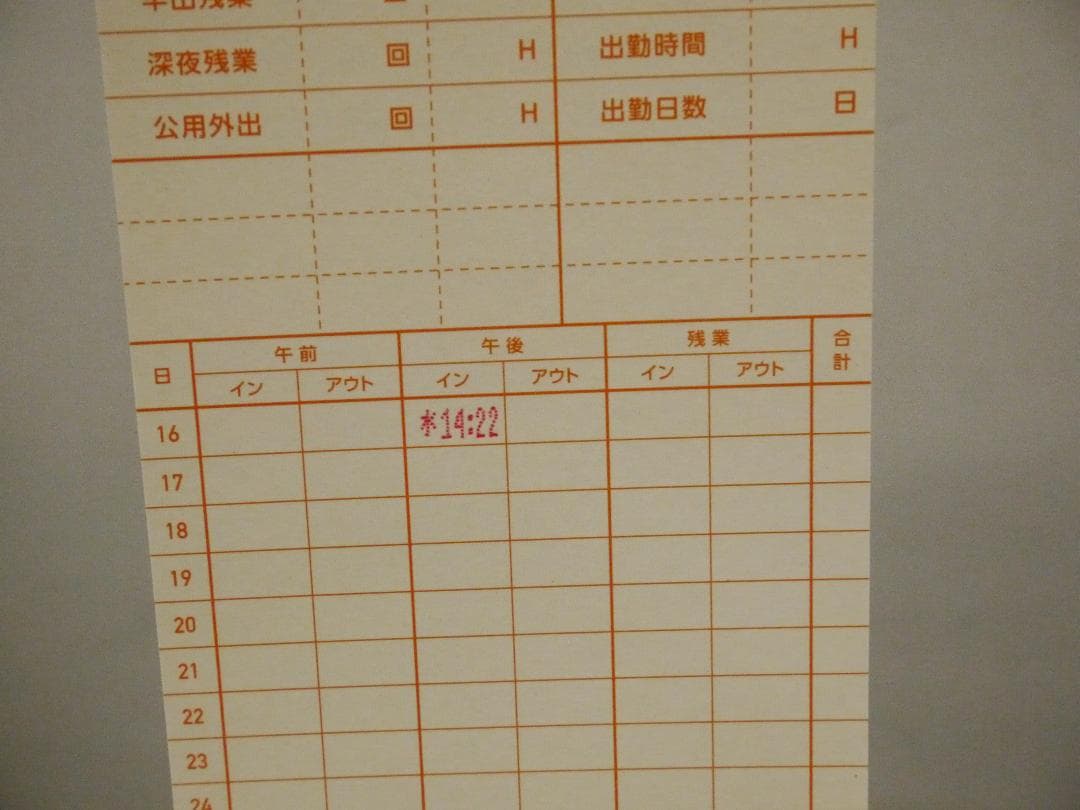 早出残業 回
深夜残業 回 H 出勤時間 H
公用外出 回 H 出勤日数 日
日 午前 午後 残業 合計
イン アウト イン アウト イン アウト
16 水14:22
17
18
19
20
21
22
23
24